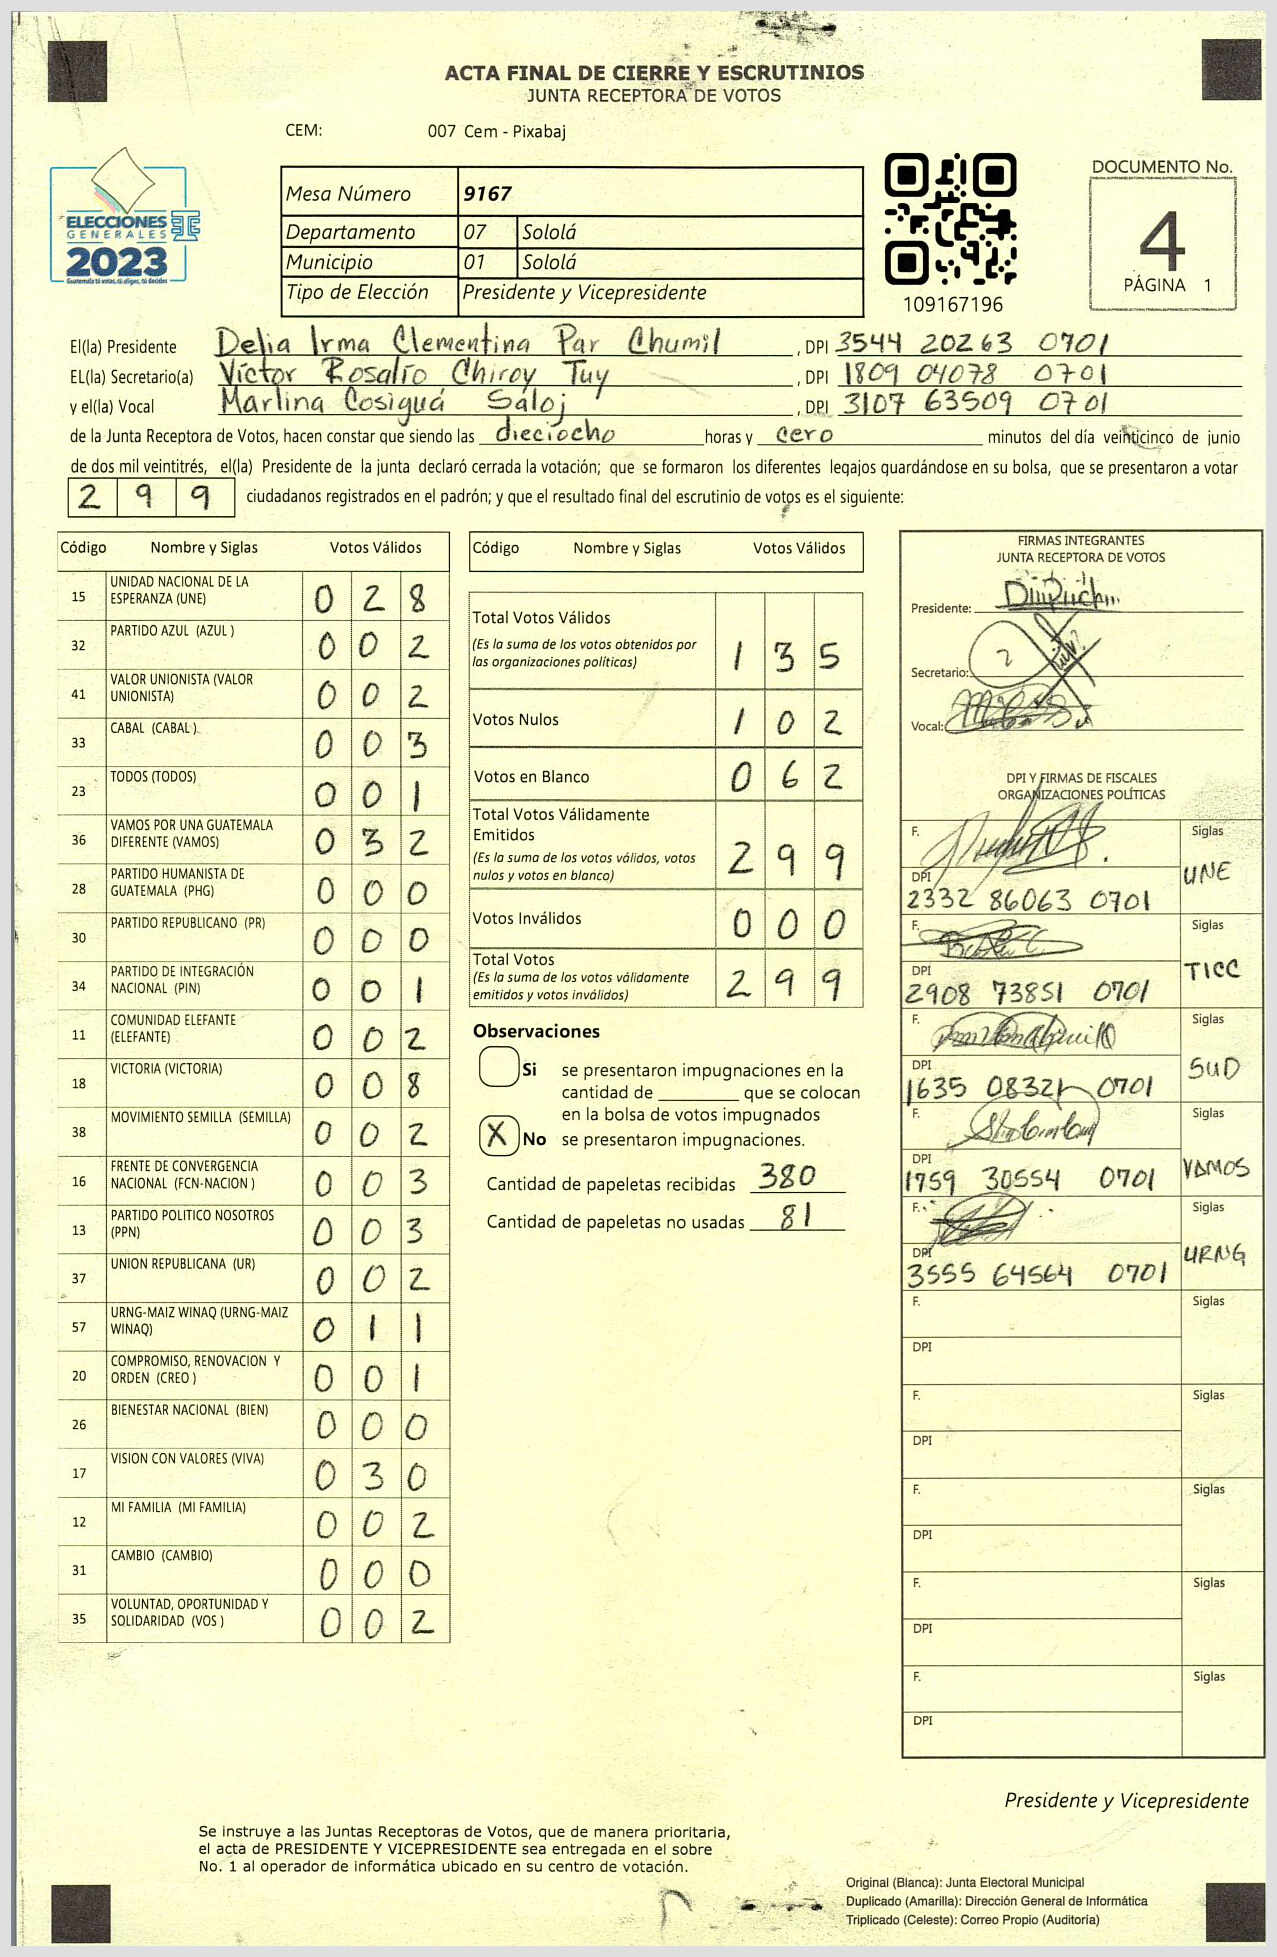 ACTA FINAL DE CIERRE Y ESCRUTINIOS
JUNTA RECEPTORA DE VOTOS
CEM: 007 Cem - Pixabaj
ELECCIONES
GENERALES
2023
Guatemala tú votas, tú eliges, tú decides
Mesa Número 9167
Departamento 07 Sololá
Municipio 01 Sololá
Tipo de Elección Presidente y Vicepresidente
109167196
DOCUMENTO No.
4
PÁGINA 1
El(la) Presidente Delia Irma Clementina Par Chumil , DPI 3544 20263 0701
EL(la) Secretario(a) Víctor Rosalío Chiroy Tuy , DPI 1809 04078 0701
y el(la) Vocal Marlina Cosiguá Saloj , DPI 3107 63509 0701
de la Junta Receptora de Votos, hacen constar que siendo las dieciocho horas y cero minutos del día veinticinco de junio
de dos mil veintitrés, el(la) Presidente de la junta declaró cerrada la votación; que se formaron los diferentes legajos guardándose en su bolsa, que se presentaron a votar
2 9 9 ciudadanos registrados en el padrón; y que el resultado final del escrutinio de votos es el siguiente:
Código Nombre y Siglas Votos Válidos
15 UNIDAD NACIONAL DE LA ESPERANZA (UNE) 0 2 8
32 PARTIDO AZUL (AZUL ) 0 0 2
41 VALOR UNIONISTA (VALOR UNIONISTA) 0 0 2
33 CABAL (CABAL ) 0 0 3
23 TODOS (TODOS) 0 0 1
36 VAMOS POR UNA GUATEMALA DIFERENTE (VAMOS) 0 3 2
28 PARTIDO HUMANISTA DE GUATEMALA (PHG) 0 0 0
30 PARTIDO REPUBLICANO (PR) 0 0 0
34 PARTIDO DE INTEGRACIÓN NACIONAL (PIN) 0 0 1
11 COMUNIDAD ELEFANTE (ELEFANTE) 0 0 2
18 VICTORIA (VICTORIA) 0 0 8
38 MOVIMIENTO SEMILLA (SEMILLA) 0 0 2
16 FRENTE DE CONVERGENCIA NACIONAL (FCN-NACION ) 0 0 3
13 PARTIDO POLITICO NOSOTROS (PPN) 0 0 3
37 UNION REPUBLICANA (UR) 0 0 2
57 URNG-MAIZ WINAQ (URNG-MAIZ WINAQ) 0 1 1
20 COMPROMISO, RENOVACION Y ORDEN (CREO ) 0 0 1
26 BIENESTAR NACIONAL (BIEN) 0 0 0
17 VISION CON VALORES (VIVA) 0 3 0
12 MI FAMILIA (MI FAMILIA) 0 0 2
31 CAMBIO (CAMBIO) 0 0 0
35 VOLUNTAD, OPORTUNIDAD Y SOLIDARIDAD (VOS ) 0 0 2
Código Nombre y Siglas Votos Válidos
Total Votos Válidos
(Es la suma de los votos obtenidos por
las organizaciones políticas) 1 3 5
Votos Nulos 1 0 2
Votos en Blanco 0 6 2
Total Votos Válidamente
Emitidos
(Es la suma de los votos válidos, votos
nulos y votos en blanco) 2 9 9
Votos Inválidos 0 0 0
Total Votos
(Es la suma de los votos válidamente
emitidos y votos inválidos) 2 9 9
Observaciones
Si se presentaron impugnaciones en la
cantidad de ________ que se colocan
en la bolsa de votos impugnados
X No se presentaron impugnaciones.
Cantidad de papeletas recibidas 380
Cantidad de papeletas no usadas 81
FIRMAS INTEGRANTES
JUNTA RECEPTORA DE VOTOS
Presidente:
Secretario:
Vocal:
DPI Y FIRMAS DE FISCALES
ORGANIZACIONES POLÍTICAS
F. Siglas
UNE
DPI
2332 86063 0701
F. Siglas
TICC
DPI
2908 73851 0701
F. Siglas
SUD
DPI
1635 08321 0701
F. Siglas
VAMOS
DPI
1759 30554 0701
F. Siglas
URNG
DPI
3555 64564 0701
F. Siglas
DPI
F. Siglas
DPI
F. Siglas
DPI
F. Siglas
DPI
F. Siglas
DPI
Presidente y Vicepresidente
Se instruye a las Juntas Receptoras de Votos, que de manera prioritaria,
el acta de PRESIDENTE Y VICEPRESIDENTE sea entregada en el sobre
No. 1 al operador de informática ubicado en su centro de votación.
Original (Blanca): Junta Electoral Municipal
Duplicado (Amarilla): Dirección General de Informática
Triplicado (Celeste): Correo Propio (Auditoría)